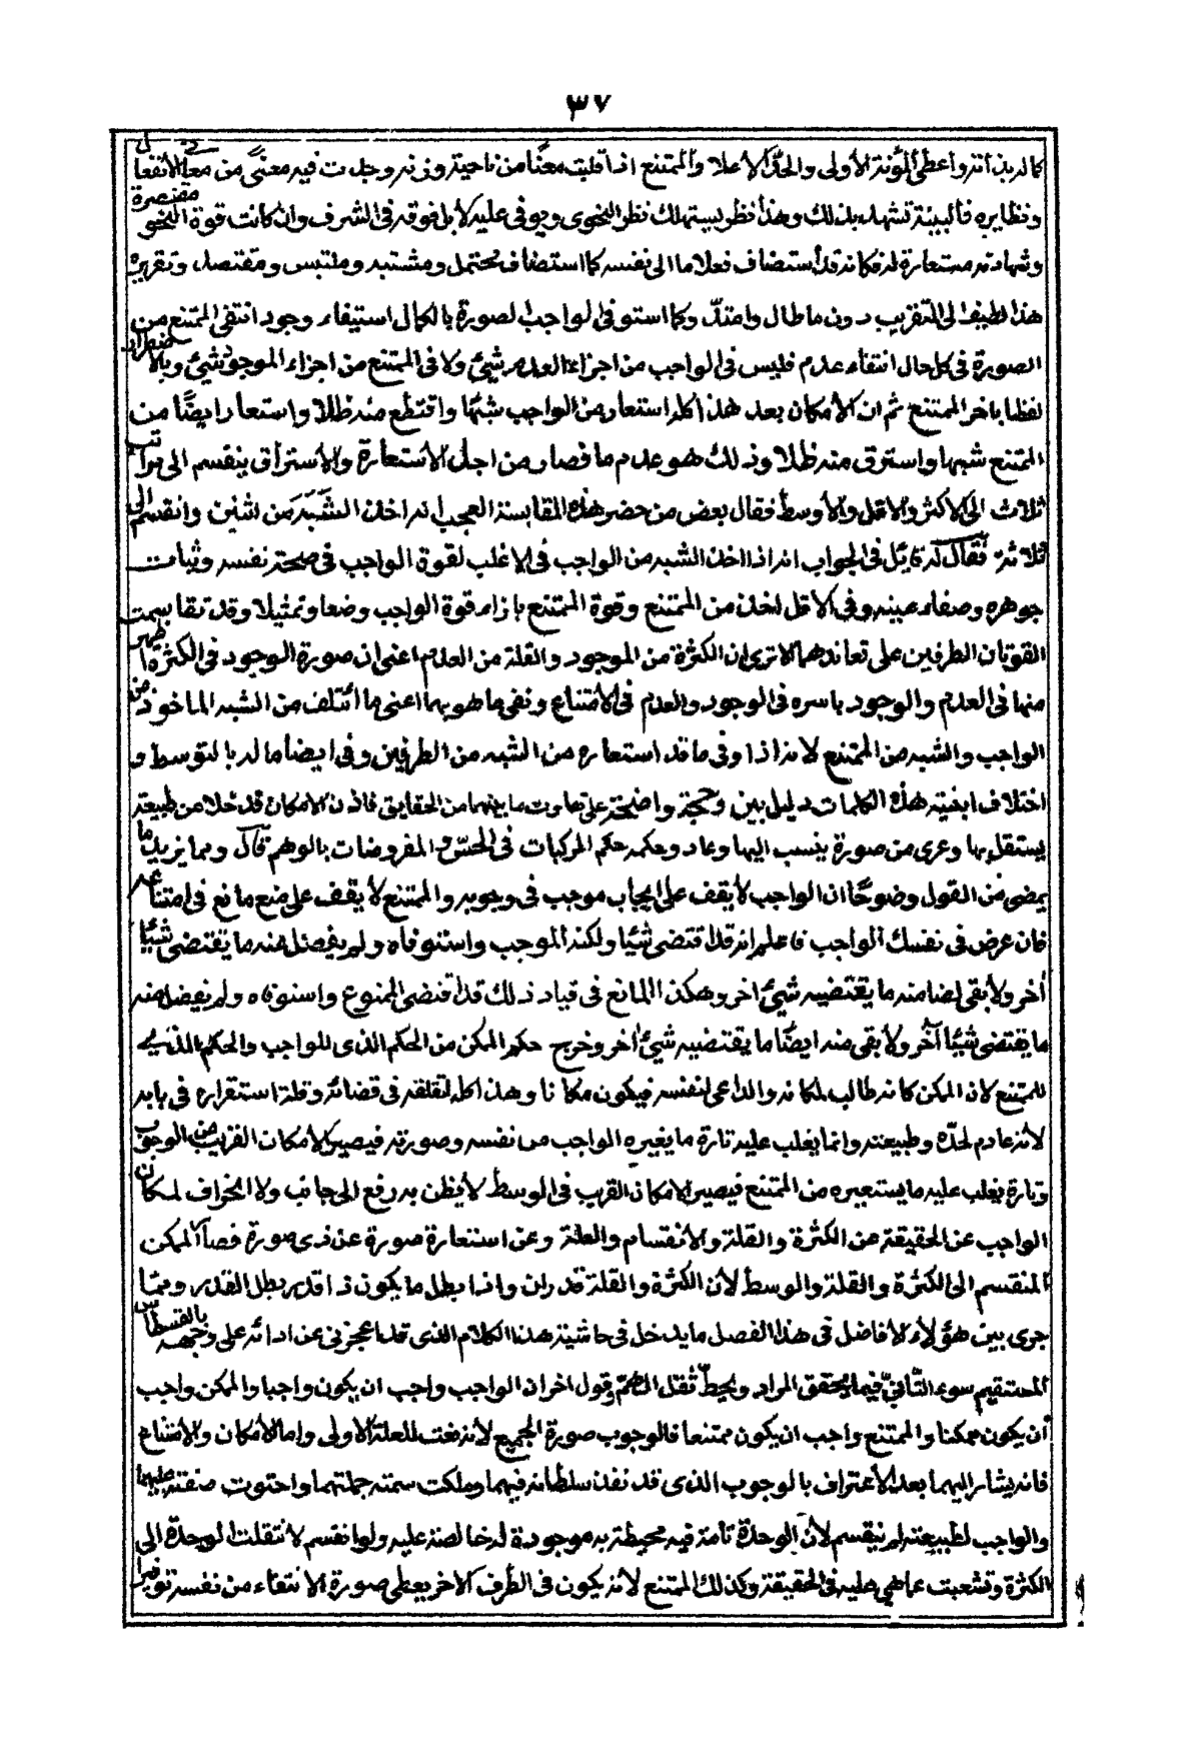 ٣٧
كالدين انه واعطي المؤنة الأولى والحال الأعلا والممتنع اذا قلبت معنًا من ناحية وزنه وجدت فيه معنًى من معاني الانفعال
ونظايره فالبينة تشهد بذلك وهذا نظر يستهلك نظر النحوى ويوفى عليه لا بل فوقه فى الشرف وان كانت قوة النحو مقتصرة
وشهادته مستعارة له فكانه قد استضاف فعلا ما الى نفسه كما استضاف محتمل ومشتبه وملتبس ومقتصد، وتقريره
هذا لطيف الى التقريب دون ما طال وامتدّ وكما استوفى الواجب الصورة بالكمال استيفاء وجود انتفى الممتنع من
الصورة فى كل حال انتفاء عدم فليس فى الواجب من اجزاء العدم شيئ ولا فى الممتنع من اجزاء الموجود شيئ وبالاضطرار
لفظا باخر الممتنع ثم ان الأمكان بعد هذا كله استعار من الواجب شبهًا واقتطع منه ظلا واستعار ايضًا من
الممتنع شبها واسترق منه ظلا وذلك هو عدم ما فصار من اجل الاستعارة والاستراق ينقسم الى مراتب
ثلاث الى الأكثر والاقل والأوسط فقال بعض من حضر هذه المقابسة العجب انه اخذ الشبه من اثنين وانقسم الى
ثلاثة فقال له قايل فى الجواب انه اذا اخذ الشبه من الواجب فى الاغلب لقوة الواجب فى صحة نفسه وثبات
جوهره وصفاء عينه وفى الاقل اخذ من الممتنع وقوة الممتنع بازاء قوة الواجب وضعا وتمثيلا وقد تقاسمت
القوتان الطرفين على تعاندهما الا ترى ان الكثرة من الموجود والقلة من العدم اعنى ان صورة الوجود فى الكثرة اظهر
منها فى العدم والوجود باسره فى الوجود والعدم فى الأمتناع ونفى ما هو بهما اعنى ما ائتلف من الشبه الماخوذ من
الواجب والشبه من الممتنع لانه اذا وفى ما قد استعاره من الشبه من الطرفين وفى ايضا ما له بالتوسط و
اختلاف ابنية هذه الكلمات دليل بين وحجة واضحة على تفاوت ما بينهما من الحقايق فاذن الامكان قد خلا من طبيعة
يستقل بها وعرى من صورة ينسب اليها وعاد وحكمه حكم المركبات فى الحسّ والمفروضات بالوهم قال ومما يزيد ما
يمضى من القول وضوحًا ان الواجب لا يقف على ايجاب موجب فى وجوبه والممتنع لا يقف على منع مانع فى امتناعه
فان عرض فى نفسك الواجب فاعلم انه قد اقتضى شيًا ولكنه الموجب واستوفاه ولم يفصل منه ما يقتضى شيئًا
أخر ولا بقى ايضا منه ما يقتضيه شيئ اخر وهكذا المانع فى قياد ذلك قد اقتضى الممنوع واستوفاه ولم يفصل منه
ما يقتضى شيئًا أخر ولا بقى منه ايضًا ما يقتضيه شيئ أخر وخرج حكم الممكن من الحكم الذى للواجب والحكم الذى
للممتنع لان الممكن كانه طالب لمكانه والداعى لنفسه فيكون مكانا وهذا كله لتقلقه فى قضائه وقلة استقراره فى بابه
لأنه عادم لحدّه وطبيعته وانما يغلب عليه تارة ما يغيره الواجب من نفسه وصورته فيصير الأمكان القريب من الوجوب
وتارة يغلب عليه ما يستعيره من الممتنع فيصير الامكان القرب فى الوسط لا يظن به رفع الى جانب ولا انحراف لمكان
الواجب عن الحقيقة عن الكثرة والقلة والأنقسام والعلة وعن استعارة صورة عن ذى صورة فصار الممكن
المنقسم الى الكثرة والقلة والوسط لأن الكثرة والقلة قدران واذا بطل ما يكون ذا قدر بطل القدر ومما
جرى بين هؤلاء الأفاضل فى هذا الفصل ما يدخل فى حاشية هذا الكلام الذى قد اعجزنى عن ادائه على وجهه بالقسطاس
المستقيم سوء التأنّى فيما يحقق المراد ويحطّ ثقل الهمّ وقول اخر ان الواجب واجب ان يكون واجبا والممكن واجب
أن يكون ممكنا والممتنع واجب ان يكون ممتنعا فالوجوب صورة الجميع لأنه نعت للعلة الأولى واما الأمكان والأمتناع
فانه يشار اليهما بعد الأعتراف بالوجوب الذى قد نفذ سلطانه فيهما وملكت سمته جملتهما واحتوت صفته عليهما
والواجب لطبيعته لم ينقسم لأن الوحدة تامة فيه محيطة به موجودة له خالصة عليه ولو انقسم لانتقلت الوحدة الى
الكثرة وتشعبت عما هى عليه فى الحقيقة وكذلك الممتنع لانه يكون فى الطرف الاخر يعطى صورة الانتفاء من نفسه توفيرا